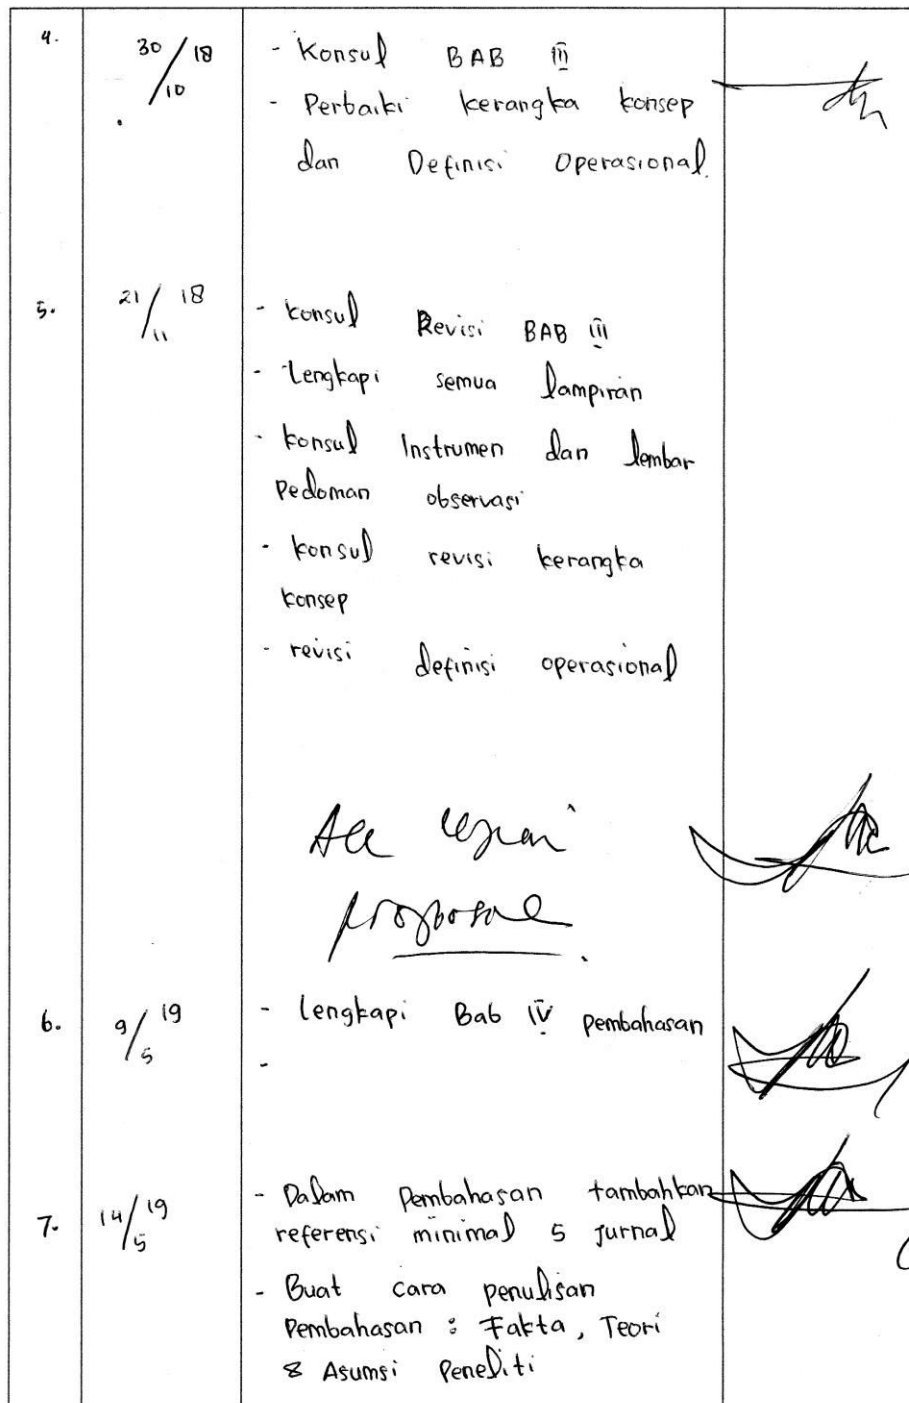 4.
30/10 18
- Konsul BAB III
- Perbaiki kerangka konsep
dan Definisi Operasional.
5.
21/11 18
- konsul Revisi BAB III
- Lengkapi semua lampiran
- konsul Instrumen dan lembar
Pedoman observasi
- konsul revisi kerangka
konsep
- revisi definisi operasional
Acc
proposal
6.
9/5 19
- Lengkapi Bab IV pembahasan
-
7.
14/5 19
- Dalam Pembahasan tambahkan
referensi minimal 5 jurnal
- Buat cara penulisan
Pembahasan : Fakta, Teori
& Asumsi Peneliti